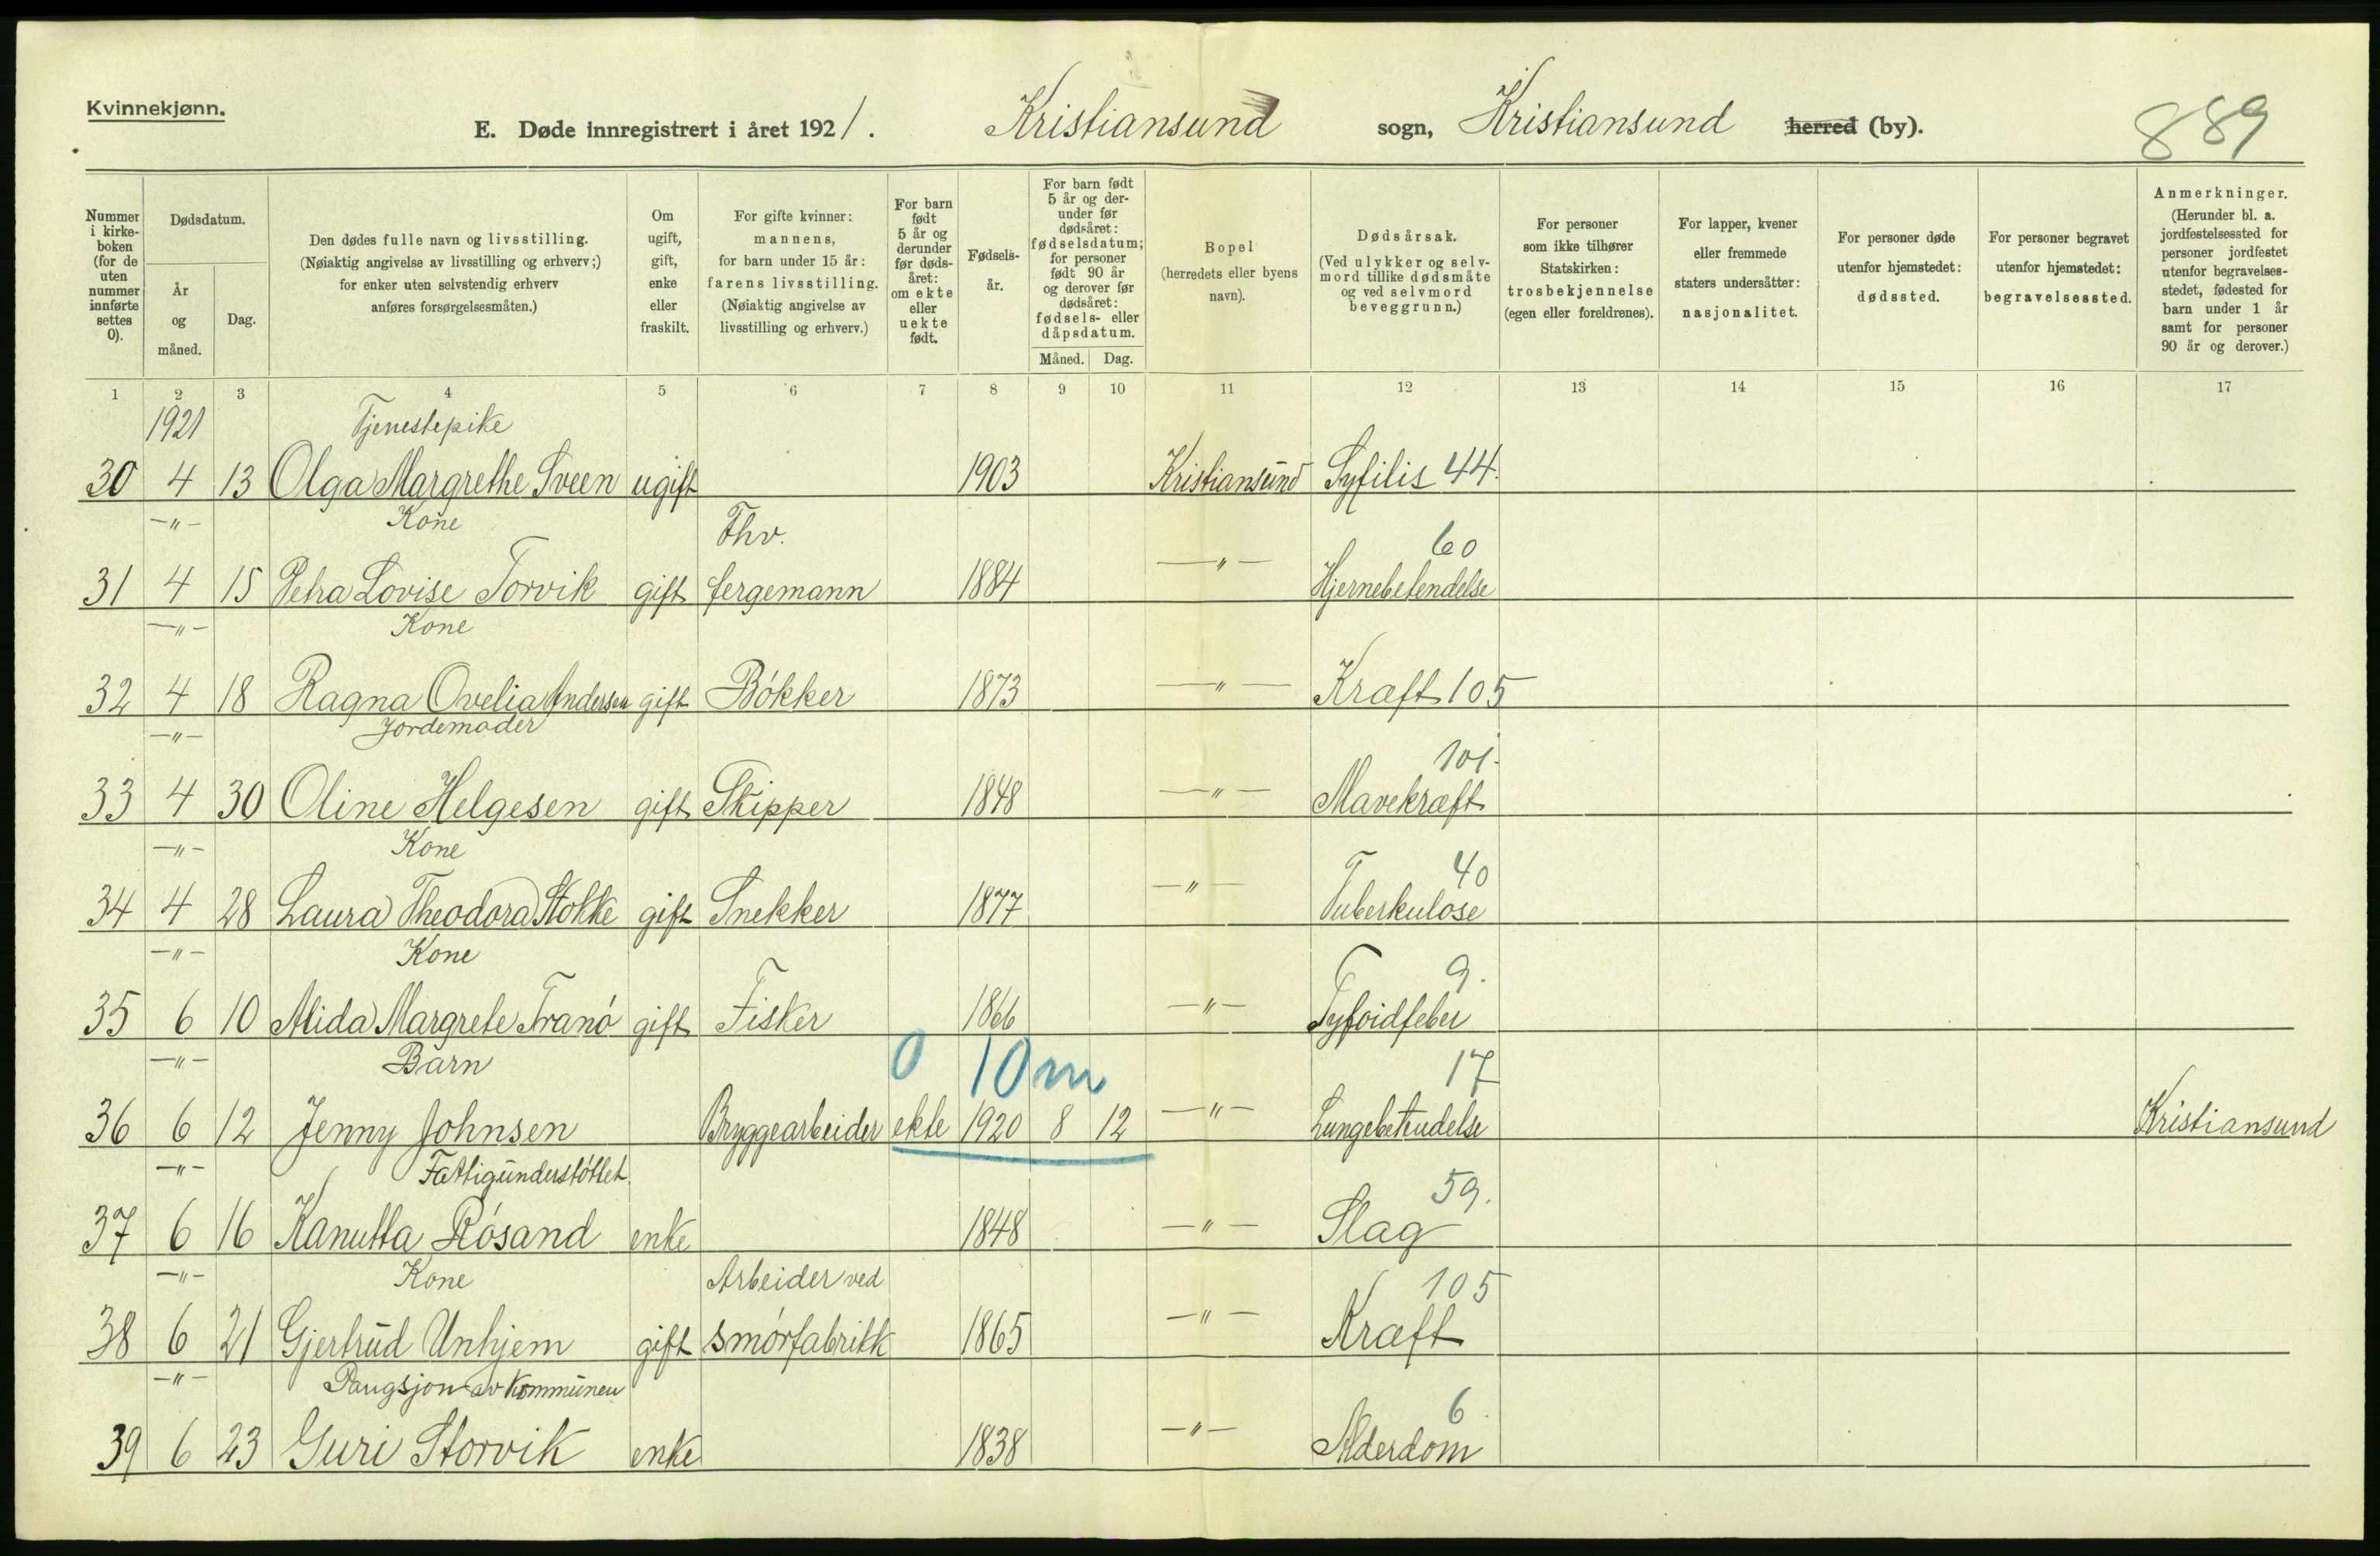 Kvinnekjønn.
E. Døde innregistrert i året 1921. Kristiansund sogn, Kristiansund herred (by). 889
Nummer i kirkeboken (for de uten nummer innførte settes 0).
Dødsdatum.
År og måned.
Dag.
Den dødes fulle navn og livsstilling. (Nøiaktig angivelse av livsstilling og erhverv;) for enker uten selvstendig erhverv anføres forsørgelsesmåten.)
Om ugift, gift, enke eller fraskilt.
For gifte kvinner: mannens, for barn under 15 år: farens livsstilling. (Nøiaktig angivelse av livsstilling og erhverv.)
For barn født 5 år og derunder før dødsåret: om ekte eller uekte født.
Fødselsår.
For barn født 5 år og derunder før dødsåret: fødselsdatum; for personer født 90 år og derover før dødsåret: fødsels- eller dåpsdatum.
Måned. Dag.
Bopel (herredets eller byens navn).
Dødsårsak. (Ved ulykker og selvmord tillike dødsmåte og ved selvmord beveggrunn.)
For personer som ikke tilhører Statskirken: trosbekjennelse (egen eller foreldrenes).
For lapper, kvener eller fremmede staters undersåtter: nasjonalitet.
For personer døde utenfor hjemstedet: dødssted.
For personer begravet utenfor hjemstedet: begravelsessted.
Anmerkninger. (Herunder bl. a. jordfestelsessted for personer jordfestet utenfor begravelsesstedet, fødested for barn under 1 år samt for personer 90 år og derover.)
1 2 3 4 5 6 7 8 9 10 11 12 13 14 15 16 17
1921 Tjenestepike
30 4 13 Olga Margrethe Sveen ugift 1903 Kristiansund Syfilis 44.
—"— Kone Fhv. 60
31 4 15 Petra Lovise Torvik gift fergemann 1884 —"— Hjernebetendelse
—"— Kone
32 4 18 Ragna Ovelia Andersen gift Bøkker 1873 —"— Kræft 105
—"— Jordemoder 101.
33 4 30 Oline Helgesen gift Skipper 1848 —"— Mavekræft
—"— Kone 40
34 4 28 Laura Theodora Stokke gift Snekker 1877 —"— Tuberkulose
—"— Kone 9.
35 6 10 Alida Margrete Tranø gift Fisker 1866 —"— Tyfoidfeber
—"— Barn 0 10 m 17
36 6 12 Jenny Johnsen Bryggearbeider ekte 1920 8 12 —"— Lungebetendelse Kristiansund
—"— Fattigunderstøttet. 59.
37 6 16 Kanutta Røsand enke 1848 —"— Slag
—"— Kone Arbeider ved 105
38 6 21 Gjertrud Unhjem gift smørfabrikk 1865 —"— Kræft
—"— Pangsjon av kommunen 6.
39 6 23 Guri Storvik enke 1838 —"— Alderdom